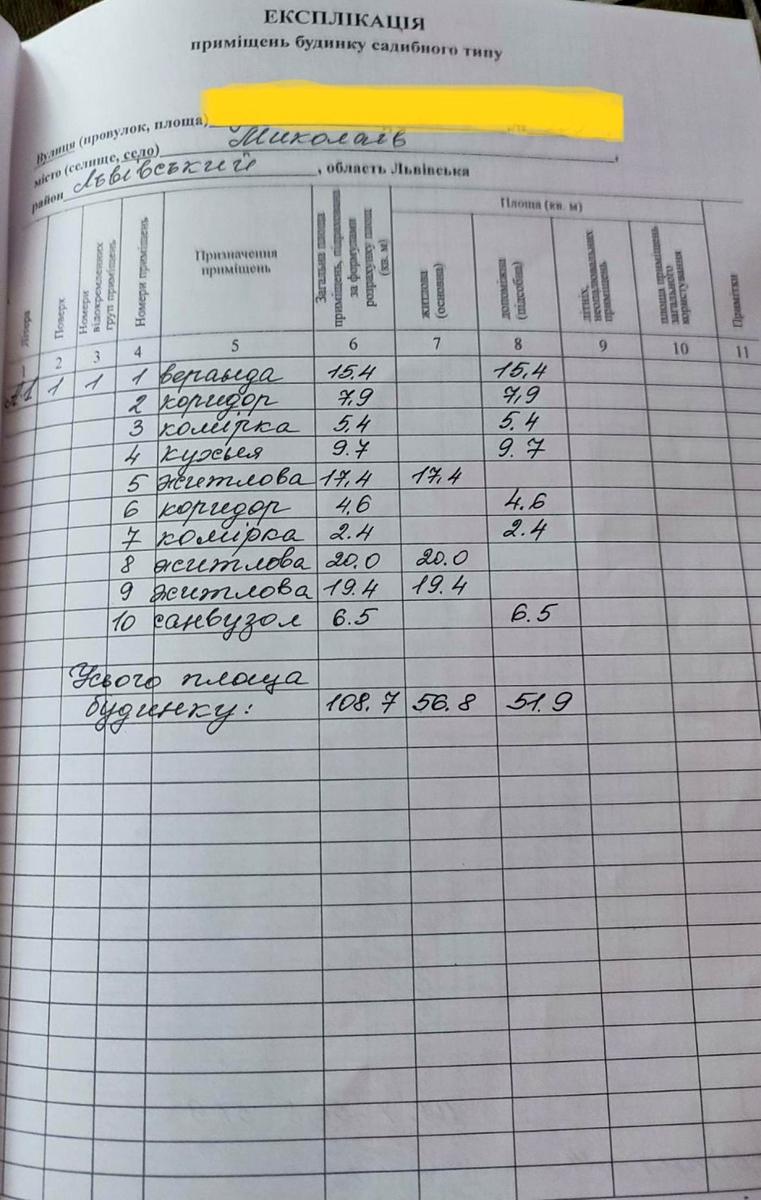 ЕКСПЛІКАЦІЯ
приміщень будинку садибного типу
Вулиця (провулок, площа)
місто (селище, село) Миколаїв ,
район Львівський , область Львівська
Літера
Поверх
Номери відокремленних груп приміщень
Номери приміщень
Призначення приміщень
Загальна площа приміщень, підрахована за формулами розрахунку площ (кв. м)
Площа (кв. м)
житлова (основна)
допоміжна (підсобна)
літніх, неопалювальних приміщень
площа приміщень загального користування
Примітки
1 2 3 4 5 6 7 8 9 10 11
А1 1 1 1 веранда 15.4 15.4
2 коридор 7,9 7,9
3 комірка 5,4 5.4
4 кухня 9.7 9.7
5 житлова 17,4 17,4
6 коридор 4,6 4.6
7 комірка 2.4 2.4
8 житлова 20.0 20.0
9 житлова 19.4 19.4
10 санвузол 6.5 6.5
Усього площа
будинку: 108.7 56.8 51.9